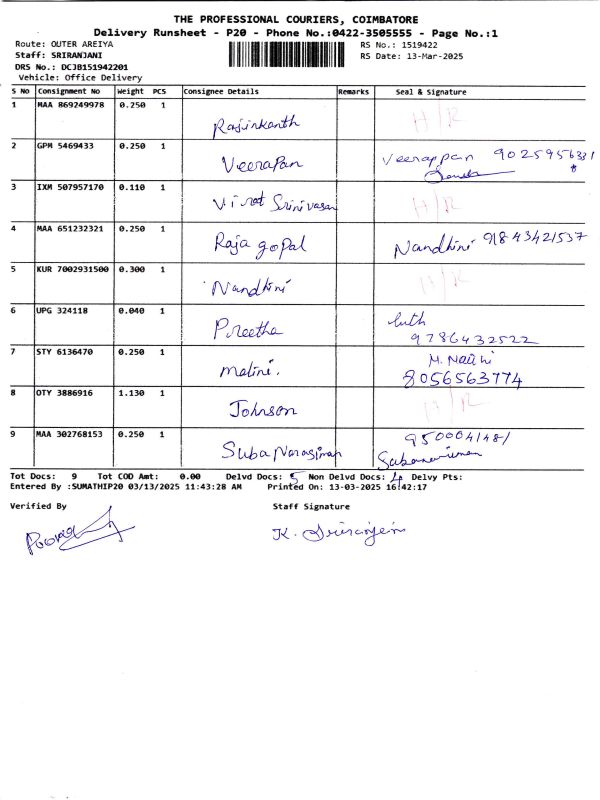 THE PROFESSIONAL COURIERS, COIMBATORE
Delivery Runsheet - P20 - Phone No.:0422-3505555 - Page No.:1
Route: OUTER AREIYA
RS No.: 1519422
Staff: SRIRANJANI
RS Date: 13-Mar-2025
DRS No.: DCJB151942201
Vehicle: Office Delivery
S No Consignment No Weight PCS Consignee Details Remarks Seal & Signature
1 MAA 869249978 0.250 1 Rajinkanth H/R
2 GPM 5469433 0.250 1 Veerapan Veerappan 9025956331
3 IXM 507957170 0.110 1 Virat Srinivasan H/R
4 MAA 651232321 0.250 1 Raja gopal Nandhini 9184342 1537
5 KUR 7002931500 0.300 1 Nandhini H/R
6 UPG 324118 0.040 1 Preetha
9786432522
7 STY 6136470 0.250 1 malini. M.
8056563774
8 OTY 3886916 1.130 1 Johnson H/R
9 MAA 302768153 0.250 1 Suba Narasiman 9500041481
Tot Docs: 9 Tot COD Amt: 0.00 Delvd Docs: 5 Non Delvd Docs: 4 Delvy Pts:
Entered By :SUMATHIP20 03/13/2025 11:43:28 AM Printed On: 13-03-2025 16:42:17
Verified By Staff Signature
K.